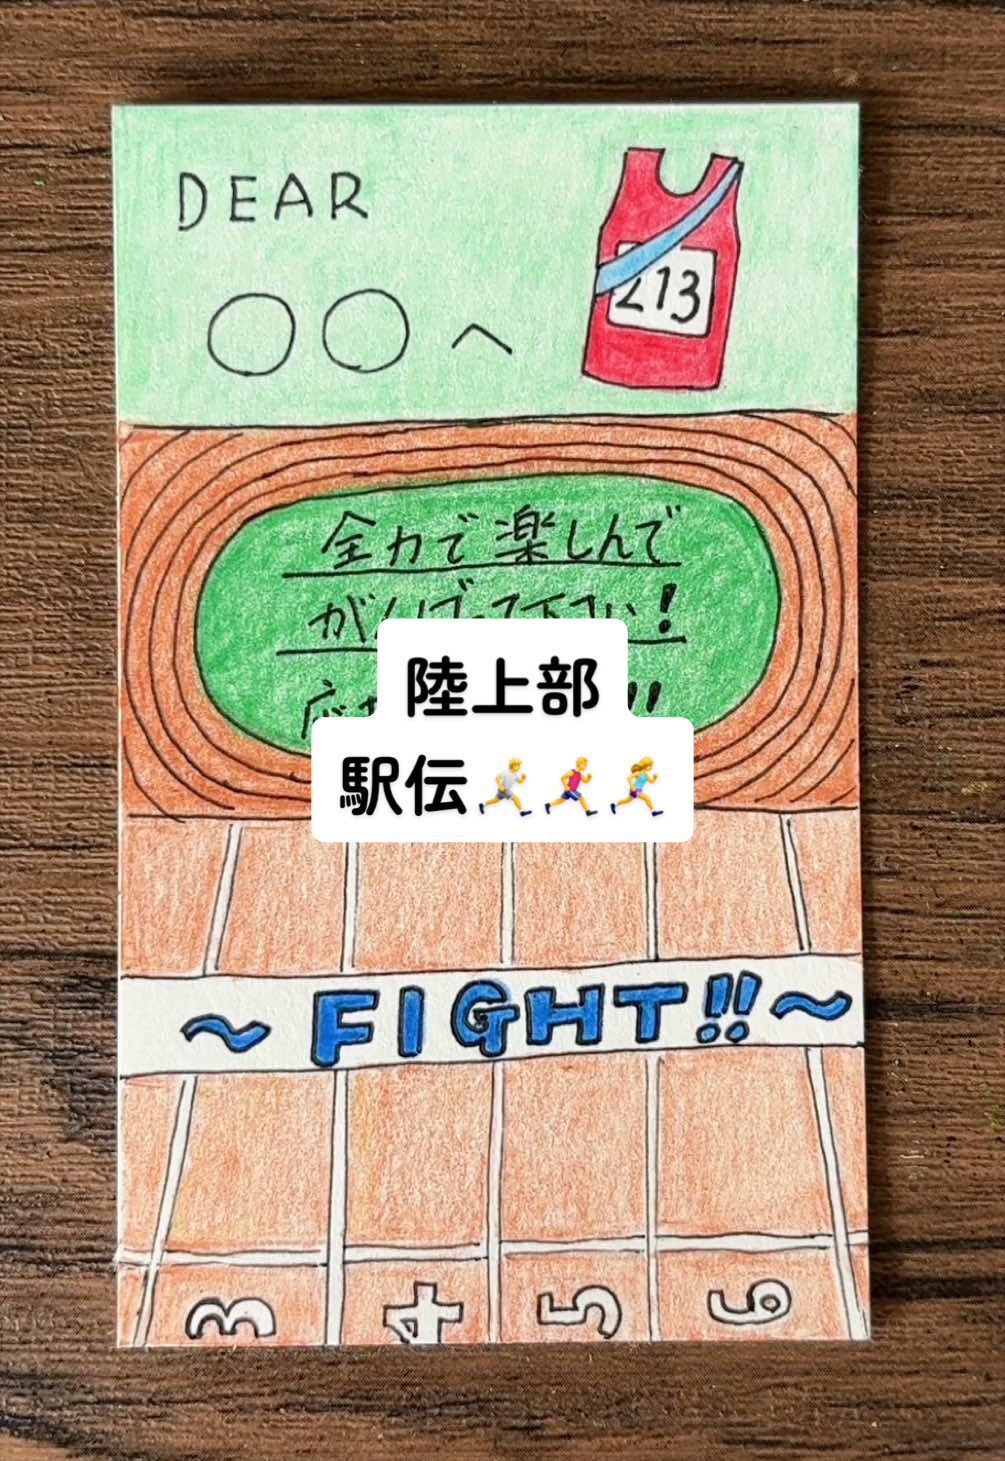 DEAR
〇〇へ
213
全力で楽しんで
がんばって下さい!
応
!!
陸上部
駅伝🏃🏃🏃‍♀️
~FIGHT!!~
3 4 5 6